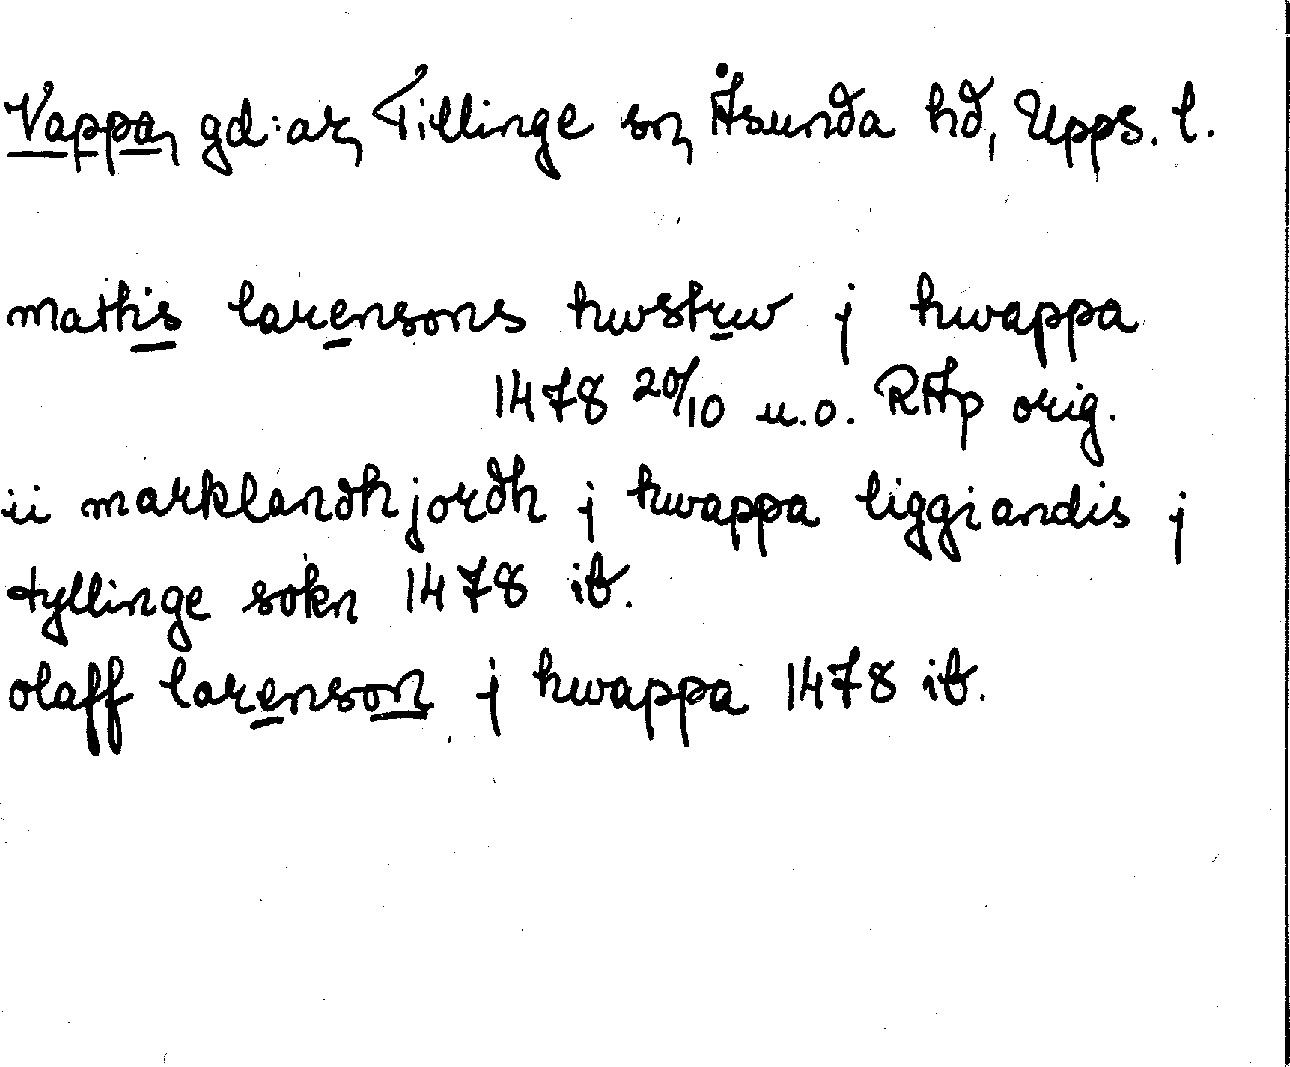 Vappa, gd:ar, Tillinge sn, Åsunda hd, Upps. l.
mathis larensons hwstrw j hwappa
1478 20/10 u.o. RAp orig.
ii marklandh jordh j hwappa liggiandis j
tyllinge sokn 1478 ib.
olaff larenson j hwappa 1478 ib.